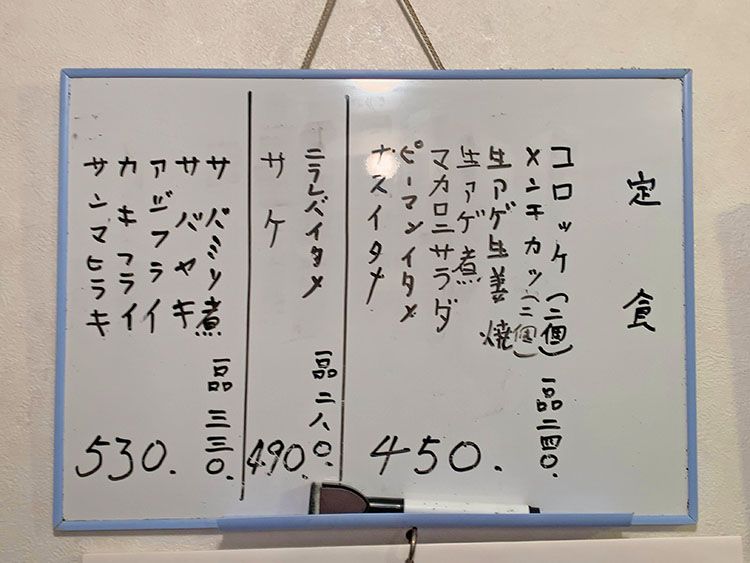 定食
コロッケ（二個）
メンチカツ（二個）
生アゲ生姜焼
生アゲ煮
マカロニサラダ
ピーマンイタメ
ナスイタメ
一品 二四〇.
450.
ニラレバイタメ
サケ
一品 二八〇.
490.
サバミソ煮
サバヤキ
アジフライ
カキフライ
サンマヒラキ
一品 三三〇.
530.